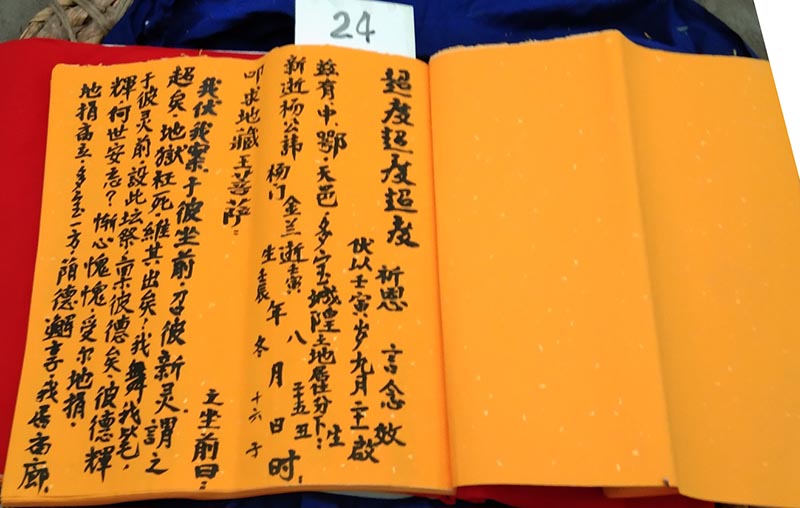 24
超度超度超度 祈恩 言念效
伏以壬寅岁九月二十一啟
兹有中鄂天邑多宝城隍土地居住分下:生
新逝杨公諱 杨门 金兰逝壬寅 年八月二十五日丑时,
生壬辰 冬 十六 子
叩求地藏王菩萨:
之坐前曰:
我伏我案,于彼坐前,召彼新灵,謂之
超矣,地獄枉死,維其出矣,我舞我笔,
于彼灵前設此坛祭,稟彼德矣,彼德輝
輝,何世安志?惭心愧愧,受尔地捐,
地捐高立,多宝一方,蔭德邂享,我居高廊,